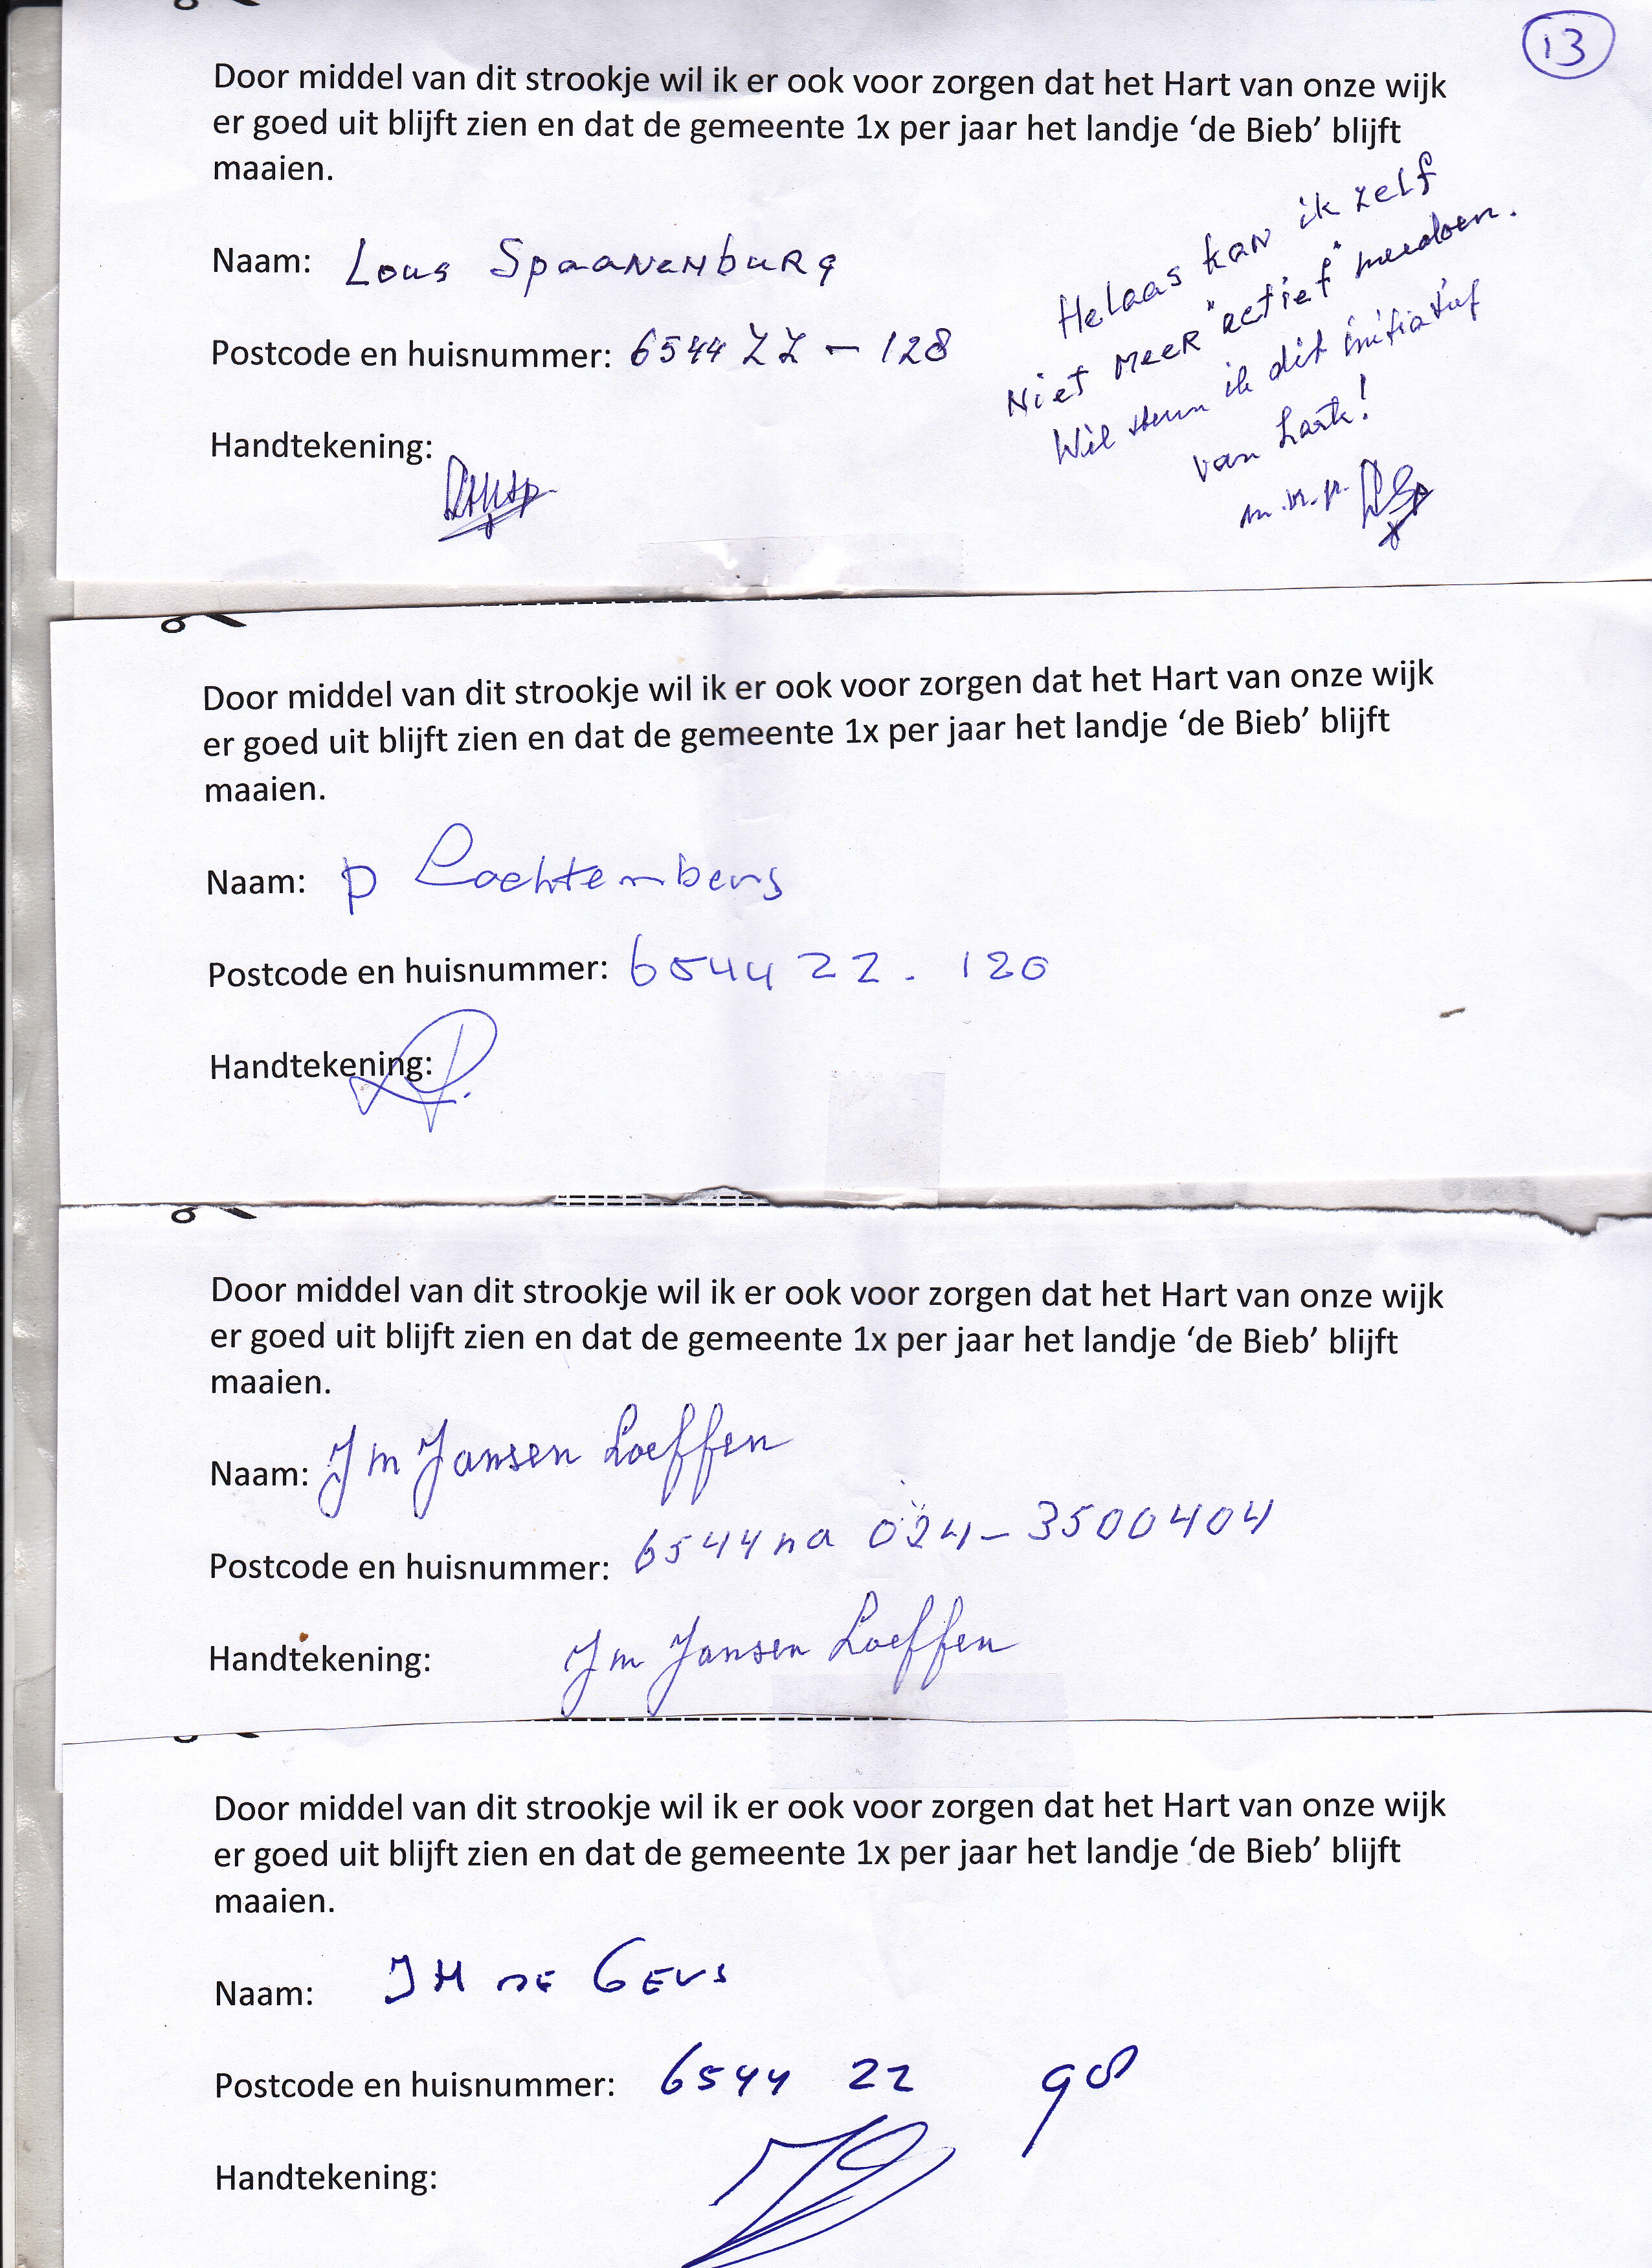 13
Door middel van dit strookje wil ik er ook voor zorgen dat het Hart van onze wijk
er goed uit blijft zien en dat de gemeente 1x per jaar het landje ‘de Bieb’ blijft
maaien.
Naam: Lous Spaanenburg
Postcode en huisnummer: 6544 ZZ - 128
Handtekening:
Helaas kan ik zelf
Niet meer "actief" meedoen.
Wel steun ik dit initiatief
van harte!
Door middel van dit strookje wil ik er ook voor zorgen dat het Hart van onze wijk
er goed uit blijft zien en dat de gemeente 1x per jaar het landje ‘de Bieb’ blijft
maaien.
Naam: P Lochtembers
Postcode en huisnummer: 6544 ZZ . 120
Handtekening:
Door middel van dit strookje wil ik er ook voor zorgen dat het Hart van onze wijk
er goed uit blijft zien en dat de gemeente 1x per jaar het landje ‘de Bieb’ blijft
maaien.
Naam: Jm Jansen Loeffen
Postcode en huisnummer: 6544 na 024-3500404
Handtekening: Jm Jansen Loeffen
Door middel van dit strookje wil ik er ook voor zorgen dat het Hart van onze wijk
er goed uit blijft zien en dat de gemeente 1x per jaar het landje ‘de Bieb’ blijft
maaien.
Naam: JH DE
Postcode en huisnummer: 6544 ZZ 98
Handtekening: